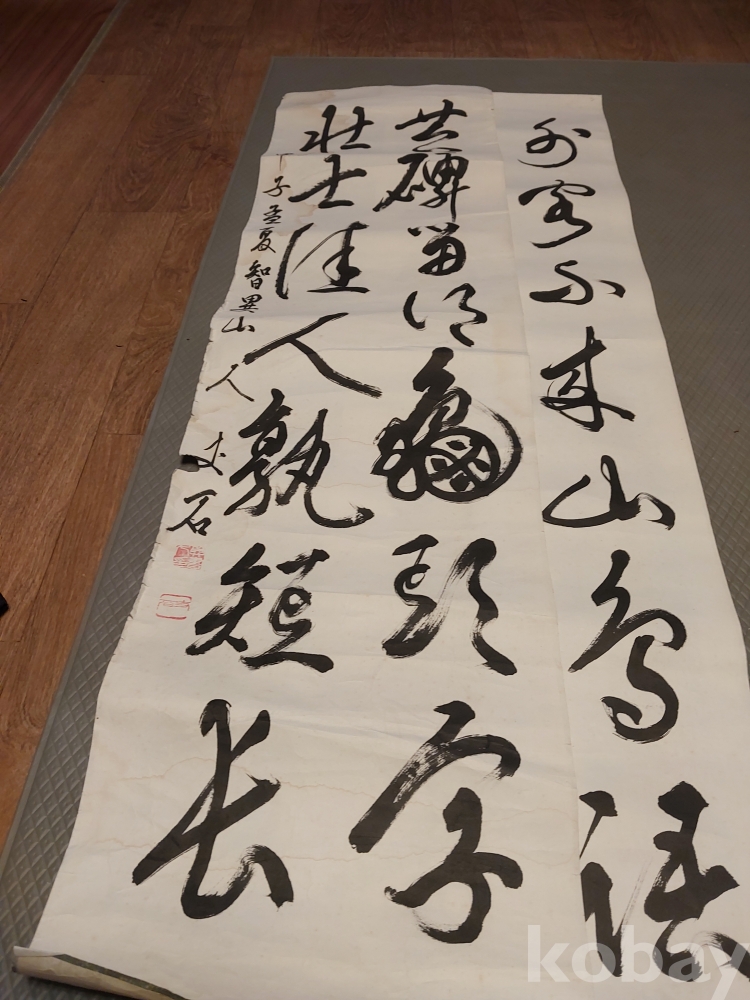 外客不來山鳥語
古碑留得龜頭字
壯士佳人孰短長
丁子孟夏智異山人 丈石
kobay